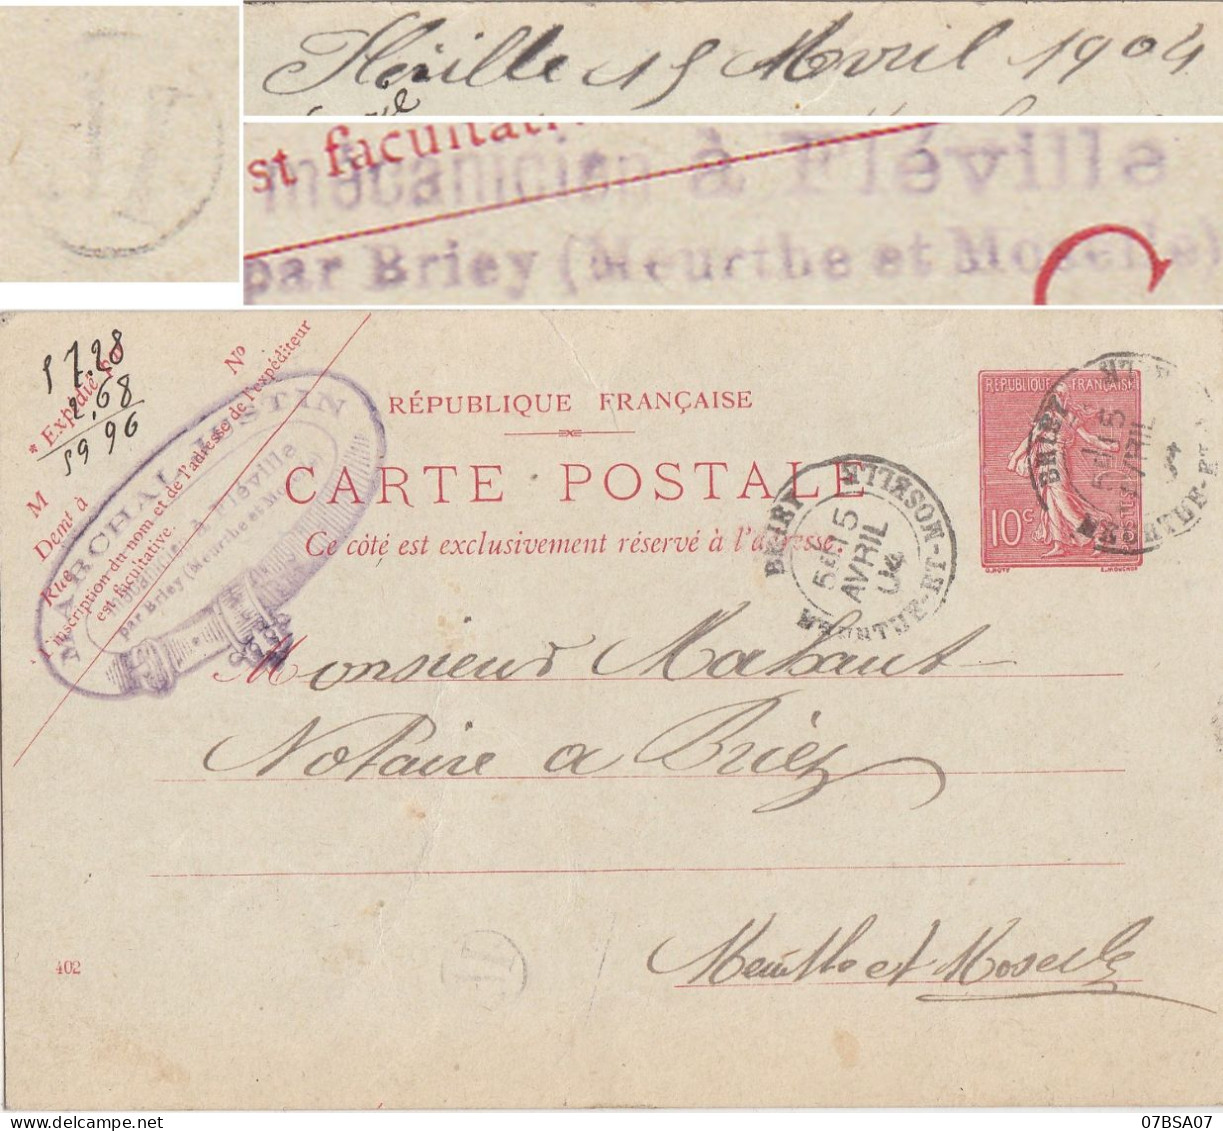 Fléville 15 Avril 1904
st facultati
mécanicien à Fléville
par Briey (Meurthe et Moselle)
57.28
2.68
59 96
* Expédié par
No
M
Demt à
Rue
L'inscription du nom et de l'adresse de l'expéditeur
est facultative.
MARCHAL JUSTIN
mécanicien à Fléville
par Briey (Meurthe et Moselle)
RÉPUBLIQUE FRANÇAISE
CARTE POSTALE
Ce côté est exclusivement réservé à l'adresse.
BRIEY
5E 15
AVRIL
04
MEURTHE-ET-MOSELLE
RÉPUBLIQUE FRANÇAISE
10c
POSTES
BRIEY
5E 15
AVRIL
MEURTHE-ET
Monsieur Mahaut
Notaire a Briey
Meurthe et Moselle
402
07BSA07